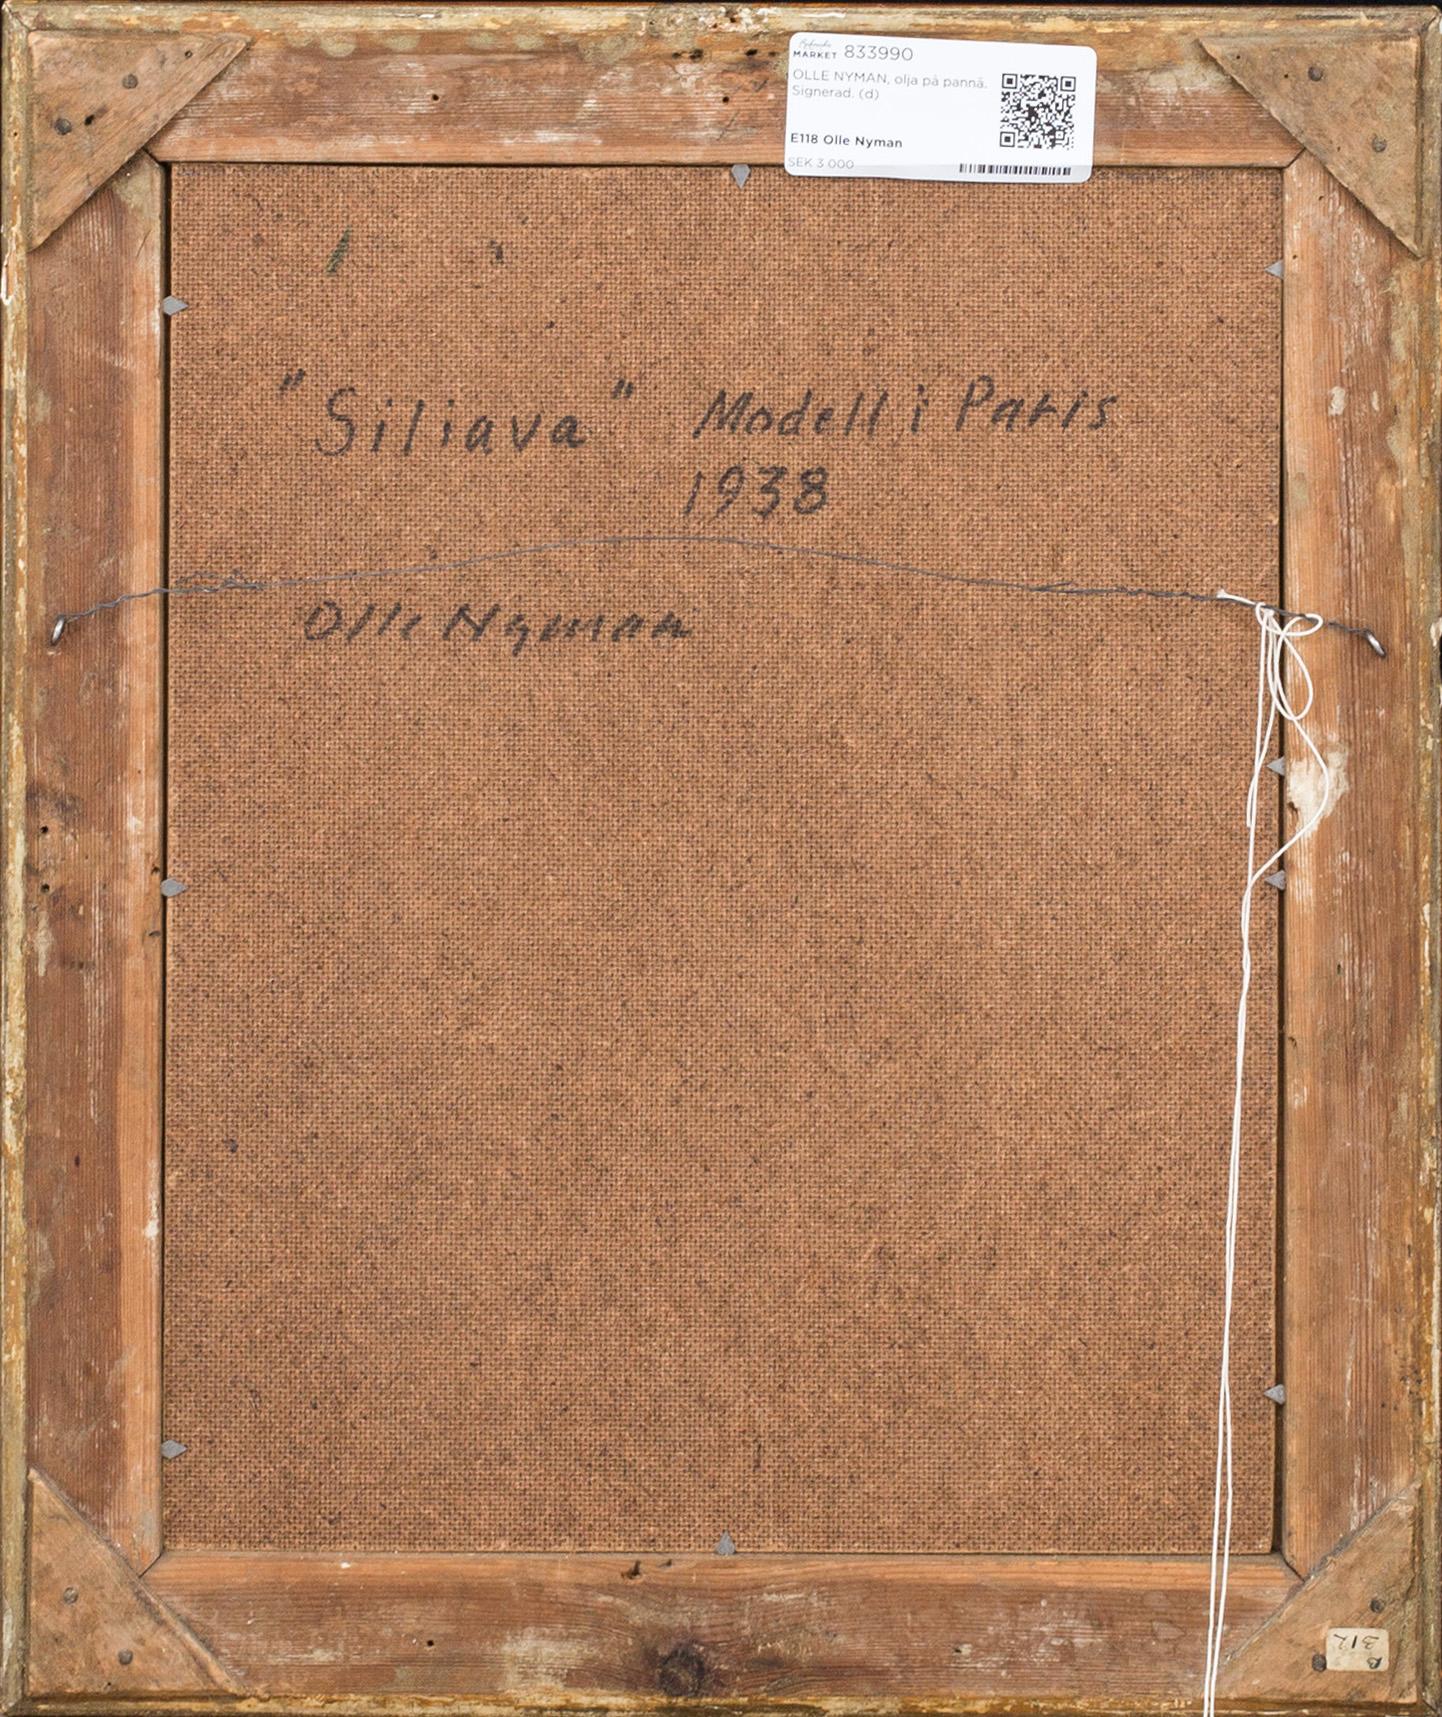 Bukowskis
MARKET 833990
OLLE NYMAN, olja på pannå.
Signerad. (d)
E118 Olle Nyman
SEK 3 000
"Siliava" Modell i Paris
1938
Olle Nyman
B
312